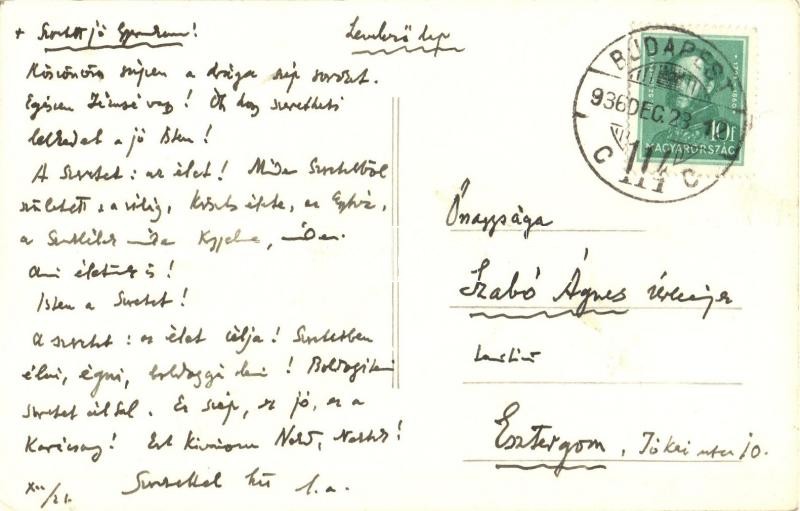 + Szeretett jó Gyermekem!
Levelező lap
Köszönöm szépen a drága szép sorozat.
Egészen Jézusé vagy! Óh hogy szeretheti
lelkedet a jó Isten!
A Szeretet: az élet! Minden Szeretetből
született: a világ, Krisztus élete, az Egyház,
a Szentlélek minden Kegyelme, minden.
Ami életünk is!
Isten a Szeretet!
A szeretet: az élet célja! Szeretetben
élni, égni, boldoggá lenni! Boldogítani
szeretet által. Ez szép, ez jó, ez a
Karácsony! Ezt Kívánom Neked, Nektek!
XII/21. Szeretettel
BUDAPEST
936 DEC. 23. 10
C 114 C
10f
MAGYARORSZÁG
Őnagysága
Szabó Ágnes
Esztergom, Jókai utca 10.